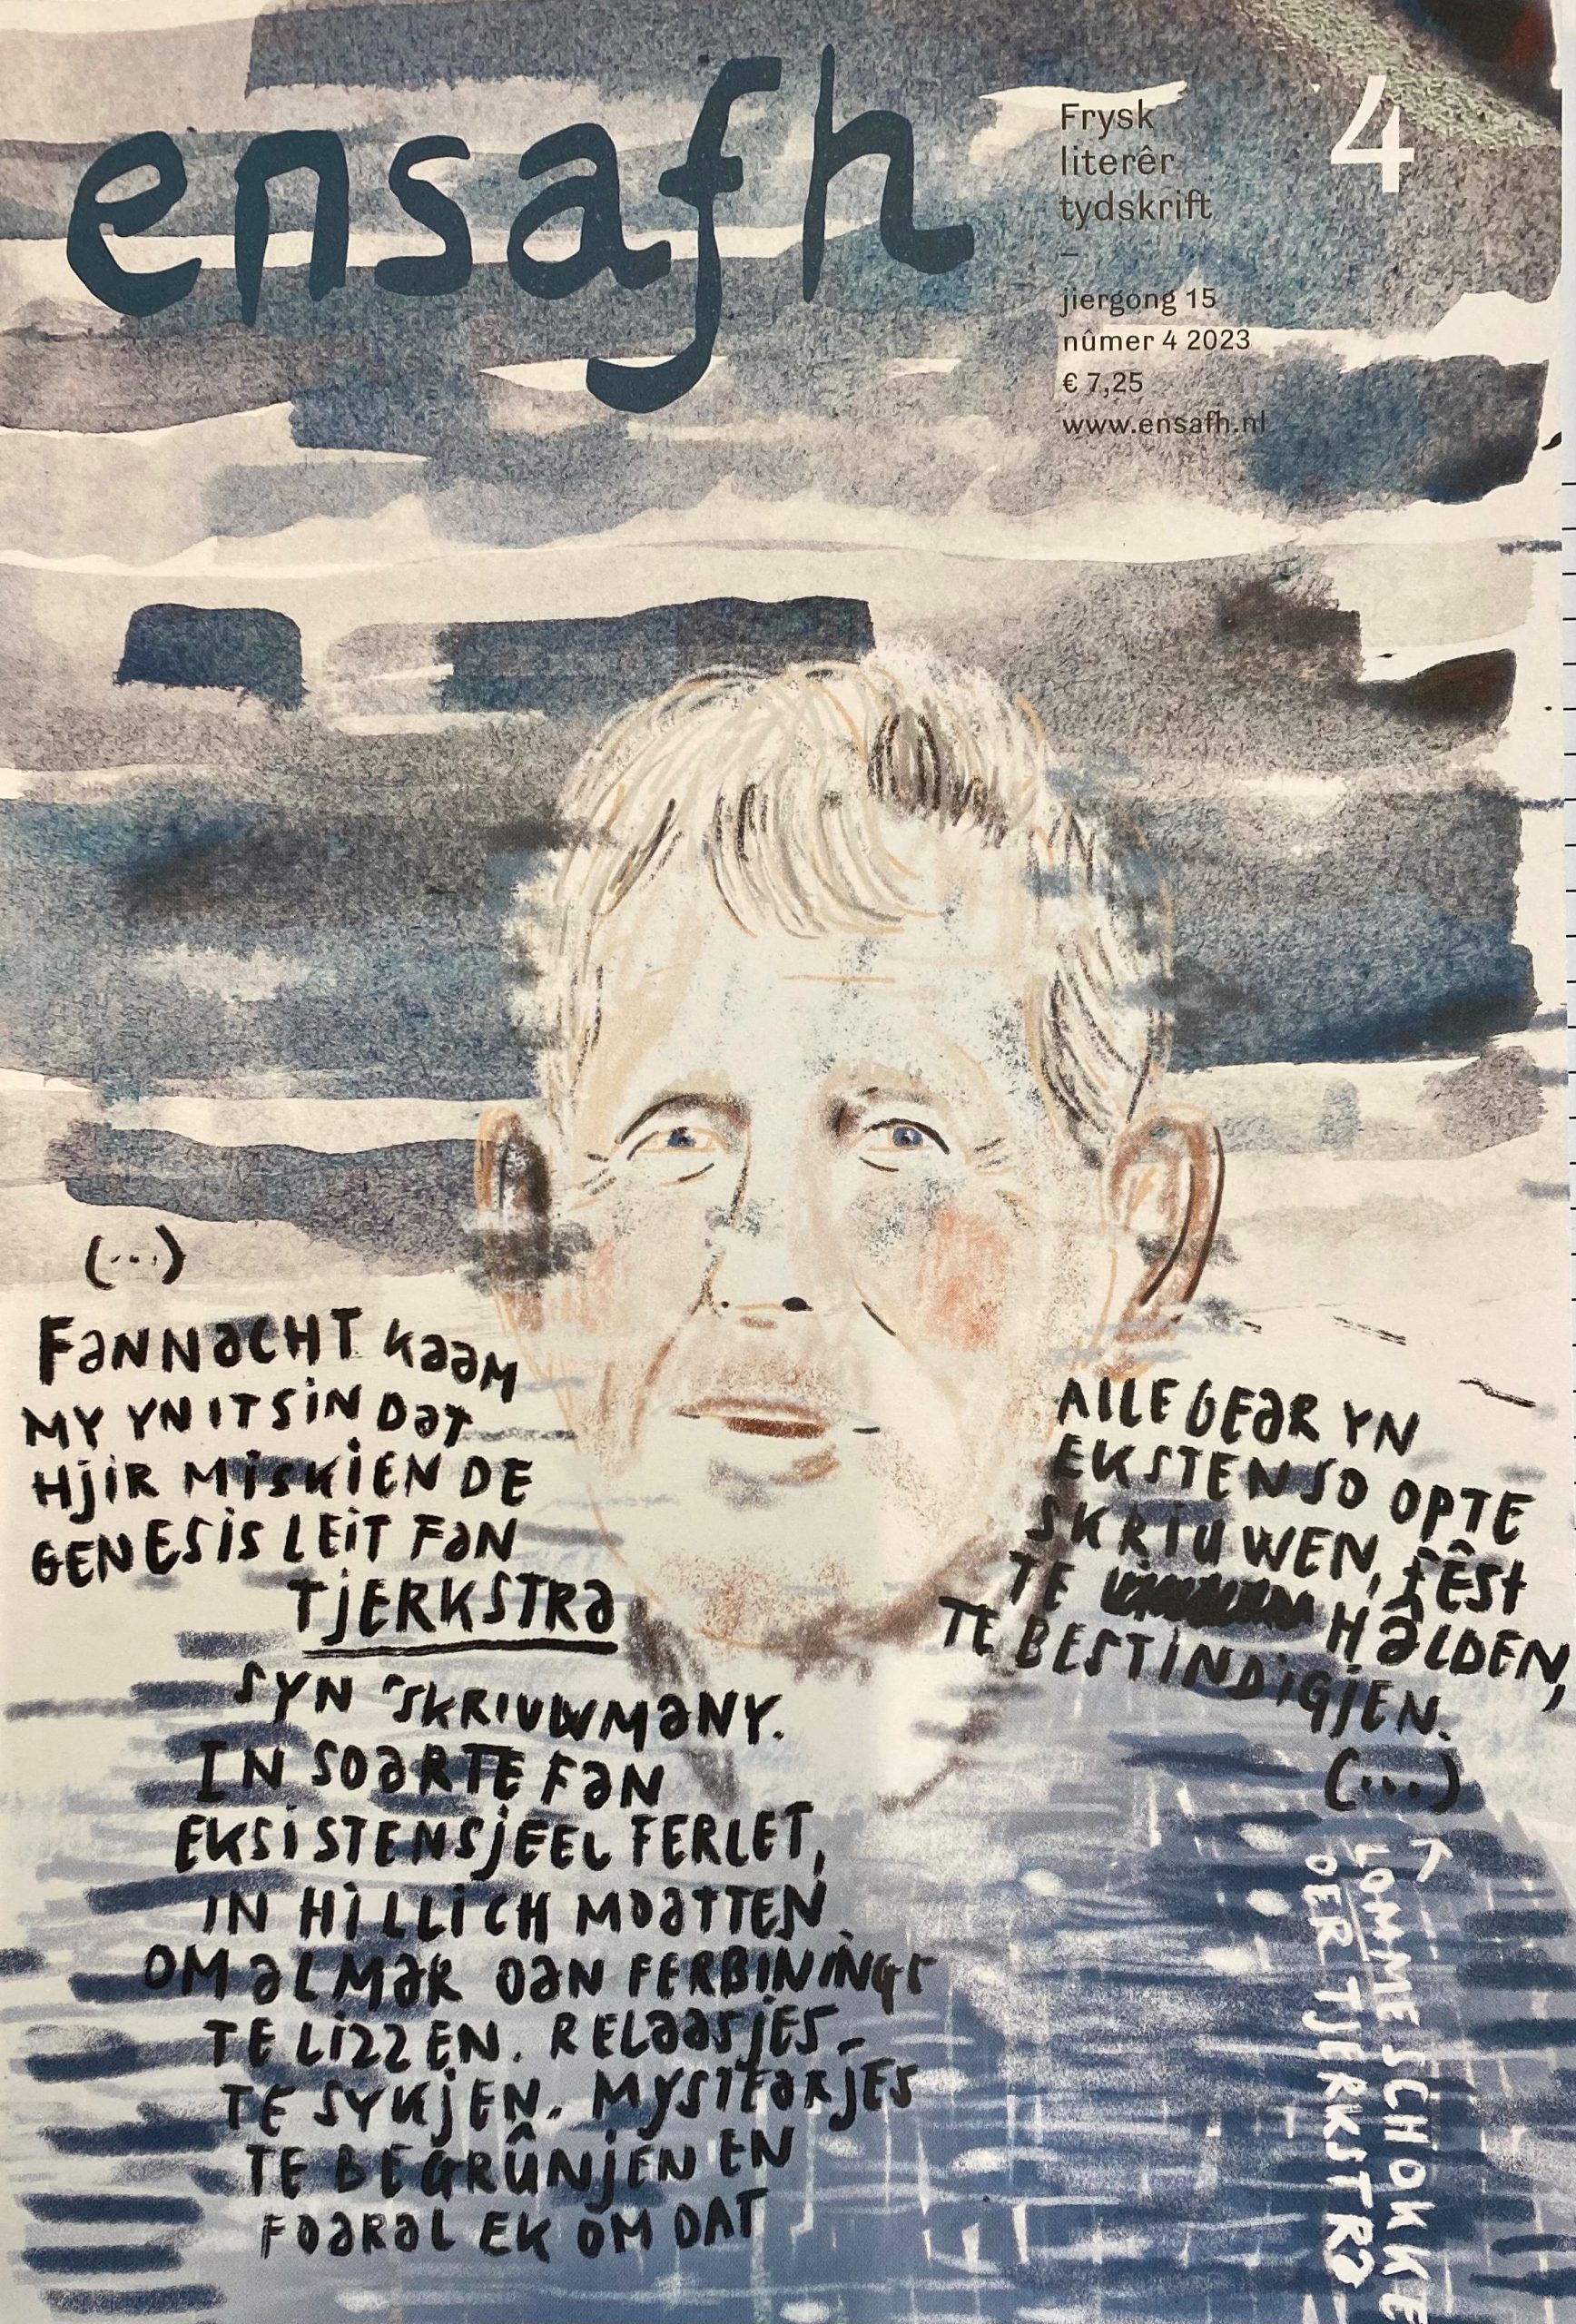 ensafh
Frysk
literêr
tydskrift
–
jiergong 15
nûmer 4 2023
€ 7,25
www.ensafh.nl
4
(...)
FANNACHT KAAM
MY YN IT SIN DAT
HJIR MISKIEN DE
GENESIS LEIT FAN
TJERKSTRA
SYN SKRIUWMANY.
IN SOARTE FAN
EKSISTENSJEEL FERLET,
IN HILLICH MOATTEN
OM ALMAR OAN FERBININGS
TE LIZZEN. RELAASJES
TE SYKJEN. MYSTEARJES
TE BEGRÛNJEN EN
FOARAL EK OM DAT
ALLEGEAR YN
EKSTENSO OP TE
SKRIUWEN, FÊST
TE HALDEN,
TE BESTINDIGJEN.
(...)
LOMME SCHOKKER
OER TJERKSTRA